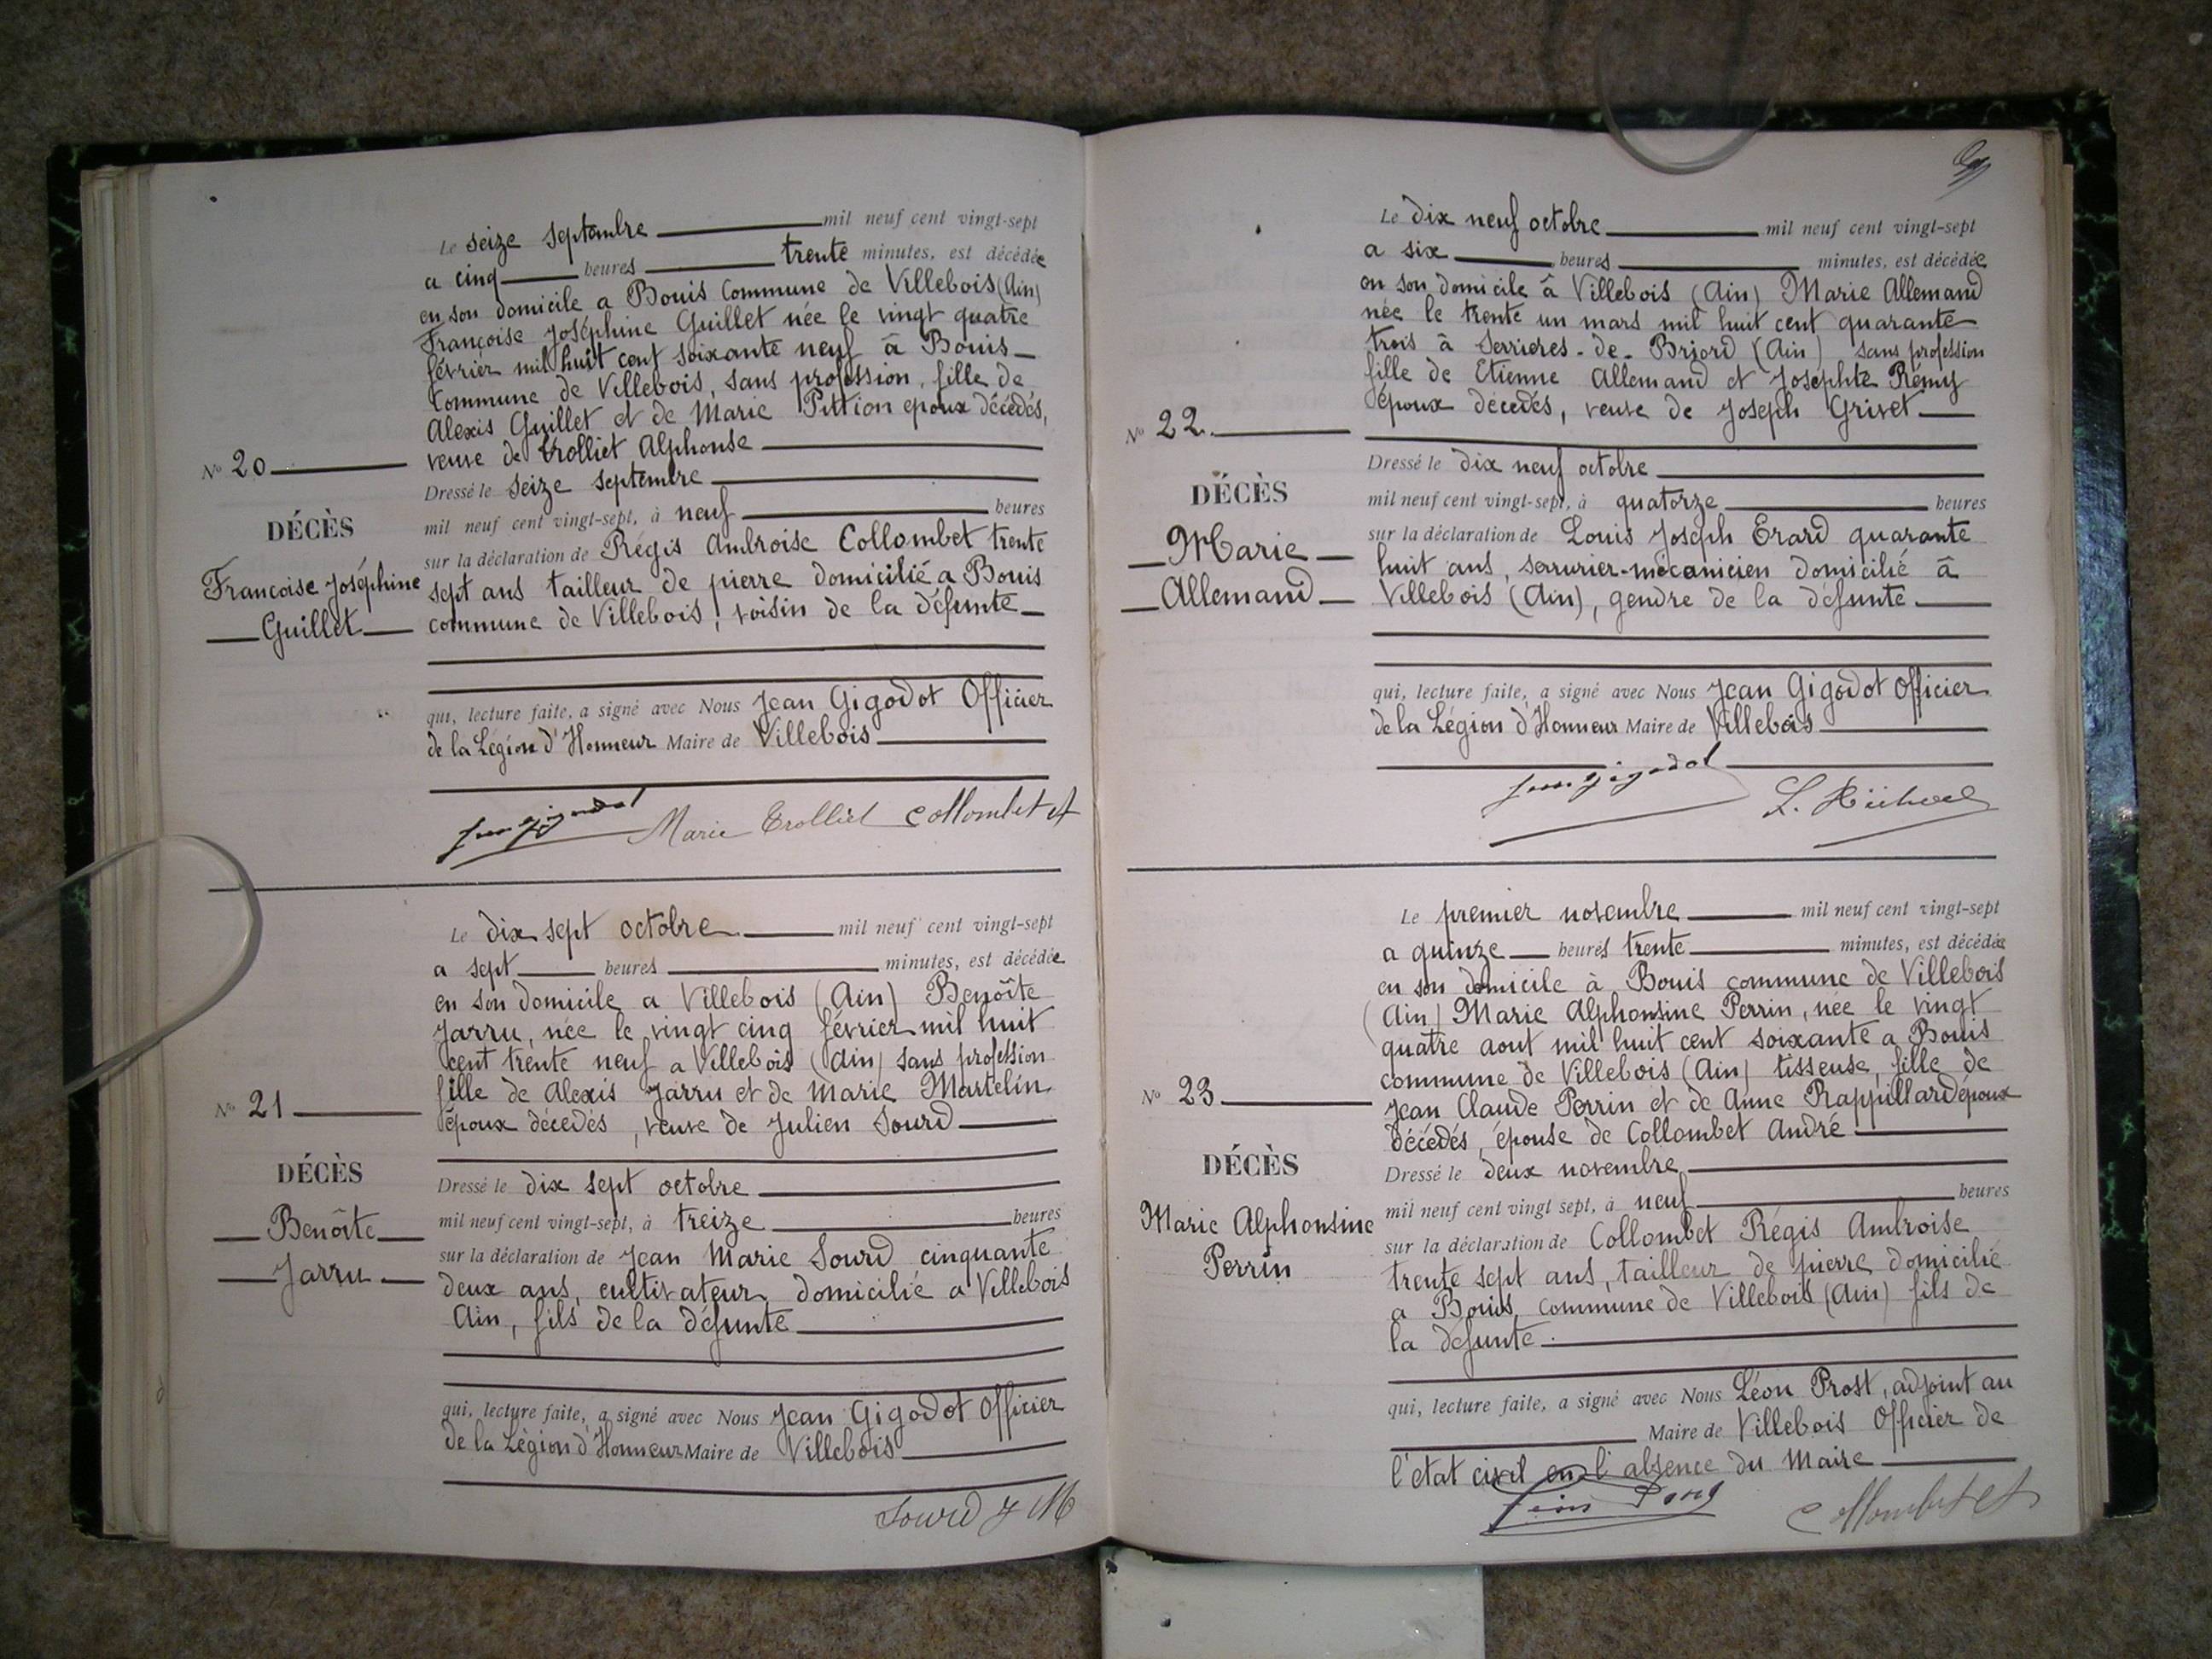 Le seize septembre mil neuf cent vingt-sept
a cinq heures trente minutes, est décédée
en son domicile a Bouis Commune de Villebois (Ain)
Françoise Joséphine Guillet née le vingt quatre
février mil huit cent soixante neuf à Bouis
Commune de Villebois, sans profession, fille de
Alexis Guillet et de Marie Pittion epoux décédés,
veuve de Trolliet Alphonse
Nº 20
Dressé le seize septembre
DÉCÈS
mil neuf cent vingt-sept, à neuf heures
sur la déclaration de Régis Ambroise Collombet trente
Francoise Joséphine
sept ans tailleur de pierre domicilié a Bouis
Guillet
commune de Villebois, voisin de la défunte
qui, lecture faite, a signé avec Nous Jean Gigodot Officier
de la Légion d'Honneur Maire de Villebois
Jean Gigodot Marie Trolliet Collombet A
Le dix sept octobre mil neuf cent vingt-sept
a sept heures minutes, est décédée
en son domicile a Villebois (Ain) Benoîte
Jarru, née le vingt cinq février mil huit
cent trente neuf a Villebois (Ain) sans profession
fille de Alexis Jarru et de Marie Martelin
époux décédés, veuve de Julien Sourd
Nº 21
DÉCÈS
Dressé le dix sept octobre
Benoîte
mil neuf cent vingt-sept, à treize heures
sur la déclaration de Jean Marie Sourd cinquante
Jarru
deux ans, cultivateur, domicilié a Villebois
Ain, fils de la défunte
qui, lecture faite, a signé avec Nous Jean Gigodot Officier
de la Légion d'Honneur Maire de Villebois
Sourd J M
Le dix neuf octobre mil neuf cent vingt-sept
a six heures minutes, est décédée
en son domicile à Villebois (Ain) Marie Allemand
née le trente un mars mil huit cent quarante
trois à Serrieres-de-Briord (Ain) sans profession
fille de Etienne Allemand et Josephte Rémy
époux décedés, veuve de Joseph Grivet
Nº 22
Dressé le dix neuf octobre
DÉCÈS
mil neuf cent vingt-sept, à quatorze heures
Marie
sur la déclaration de Louis Joseph Erard quarante
huit ans, serrurier-mécanicien domicilié à
Allemand
Villebois (Ain), gendre de la défunte
qui, lecture faite, a signé avec Nous Jean Gigodot Officier
de la Légion d'Honneur Maire de Villebois
Jean Gigodot
Le premier novembre mil neuf cent vingt-sept
a quinze heures trente minutes, est décédée
en son domicile à Bouis commune de Villebois
(Ain) Marie Alphonsine Perrin, née le vingt
quatre aout mil huit cent soixante a Bouis
commune de Villebois (Ain) tisseuse, fille de
Nº 23
Jean Claude Perrin et de Anne Rappillard époux
décédés, épouse de Collombet André
DÉCÈS
Dressé le deux novembre
Marie Alphonsine
mil neuf cent vingt sept, à neuf heures
Perrin
sur la déclaration de Collombet Régis Ambroise
trente sept ans, tailleur de pierre, domicilié
a Bouis commune de Villebois (Ain) fils de
la défunte.
qui, lecture faite, a signé avec Nous Léon Prost, adjoint au
Maire de Villebois Officier de
l'état civil en l'absence du Maire
Collombet A